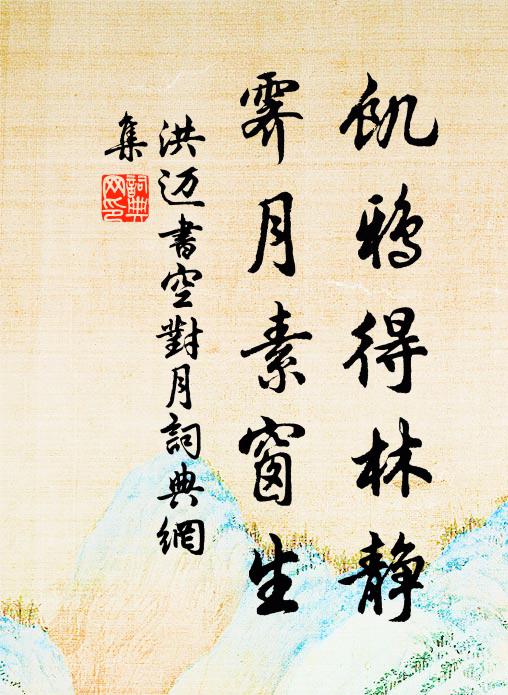 飢鴉得林静
霁月素窗生
洪迈書空對月詞典網
集
詞典网印